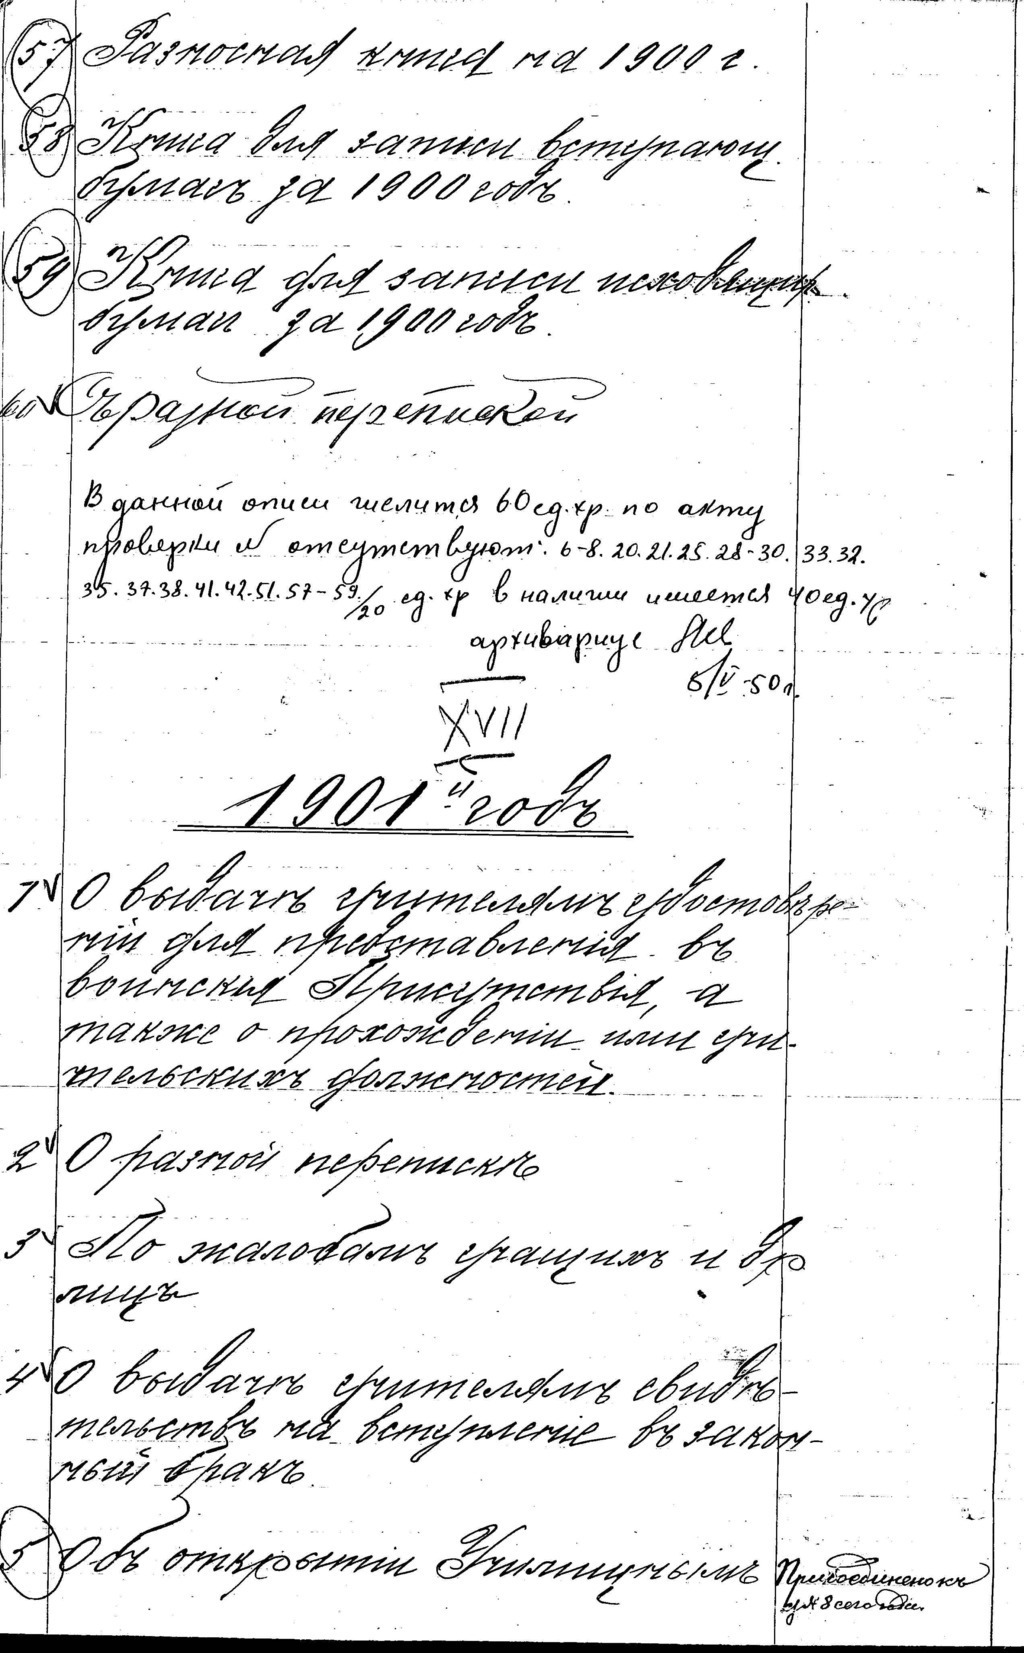 57 Разносная книга на 1900 г.
58 Книга для записи вступающ.
бумагъ за 1900 годъ.
59 Книга для записи исходящихъ
бумаг за 1900 годъ.
60 Съ разной перепиской
В данной описи числится 60 ед. хр. по акту
проверки № отсутствуют: 6-8. 20. 21. 25. 28-30. 33. 32.
35. 37. 38. 41. 42. 51. 57-59. /20 ед. хр в наличии имеется 40 ед. хр
архивариус
5/V-50 г.
XVII
1901й годъ
1 О выдачѣ учителямъ удостовѣре-
ній для представленія въ
воинскія Присутствія, а
также о прохожденіи ими учи-
тельскихъ должностей.
2 О разной перепискѣ
3 По жалобамъ учащихъ и др
лицъ
4 О выдачѣ учителямъ свидѣ-
тельствъ на вступленіе въ закон-
ный бракъ.
5 Объ открытіи Училищнымъ
Присоединено къ
д № 8 сего года.